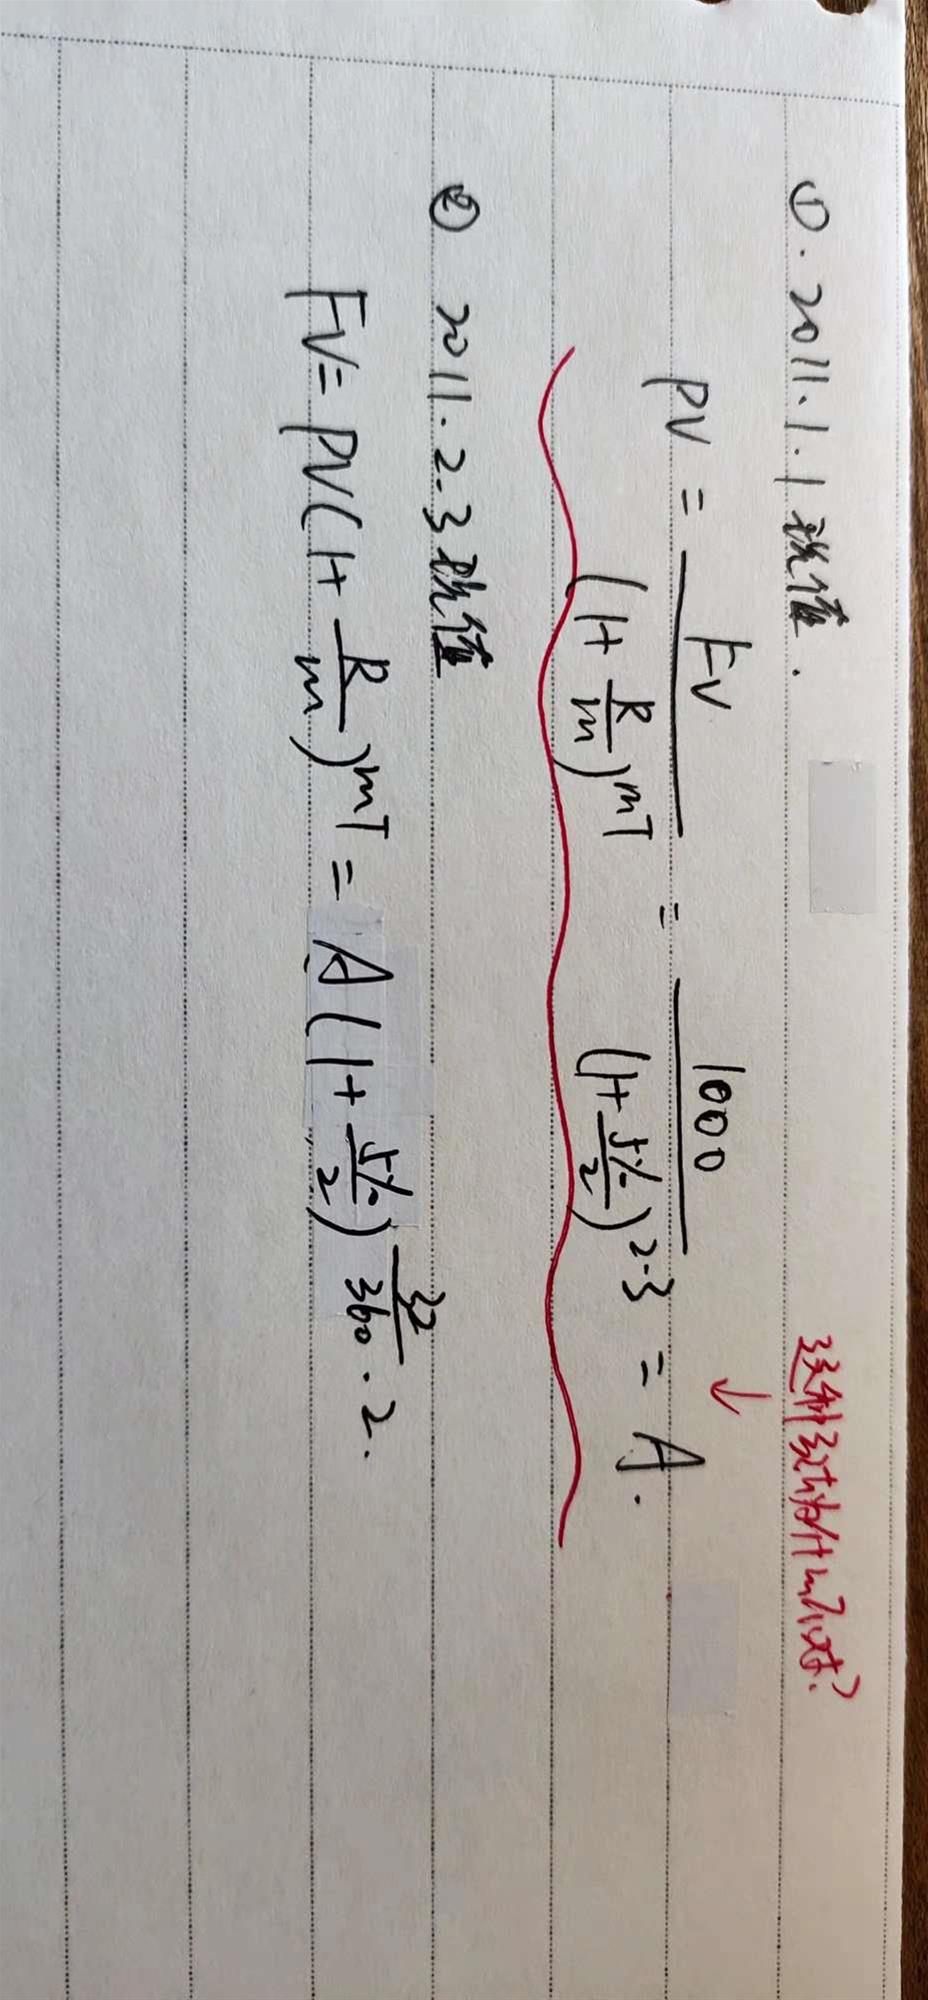 ①. 2011.1.1 现值.
PV = FV / (1 + R/m)^mT = 1000 / (1 + 5%/2)^2·3 = A.
↓
② 2011.2.3 现值
FV = PV(1 + R/m)^mT = A(1 + 5%/2)^32/360 · 2.